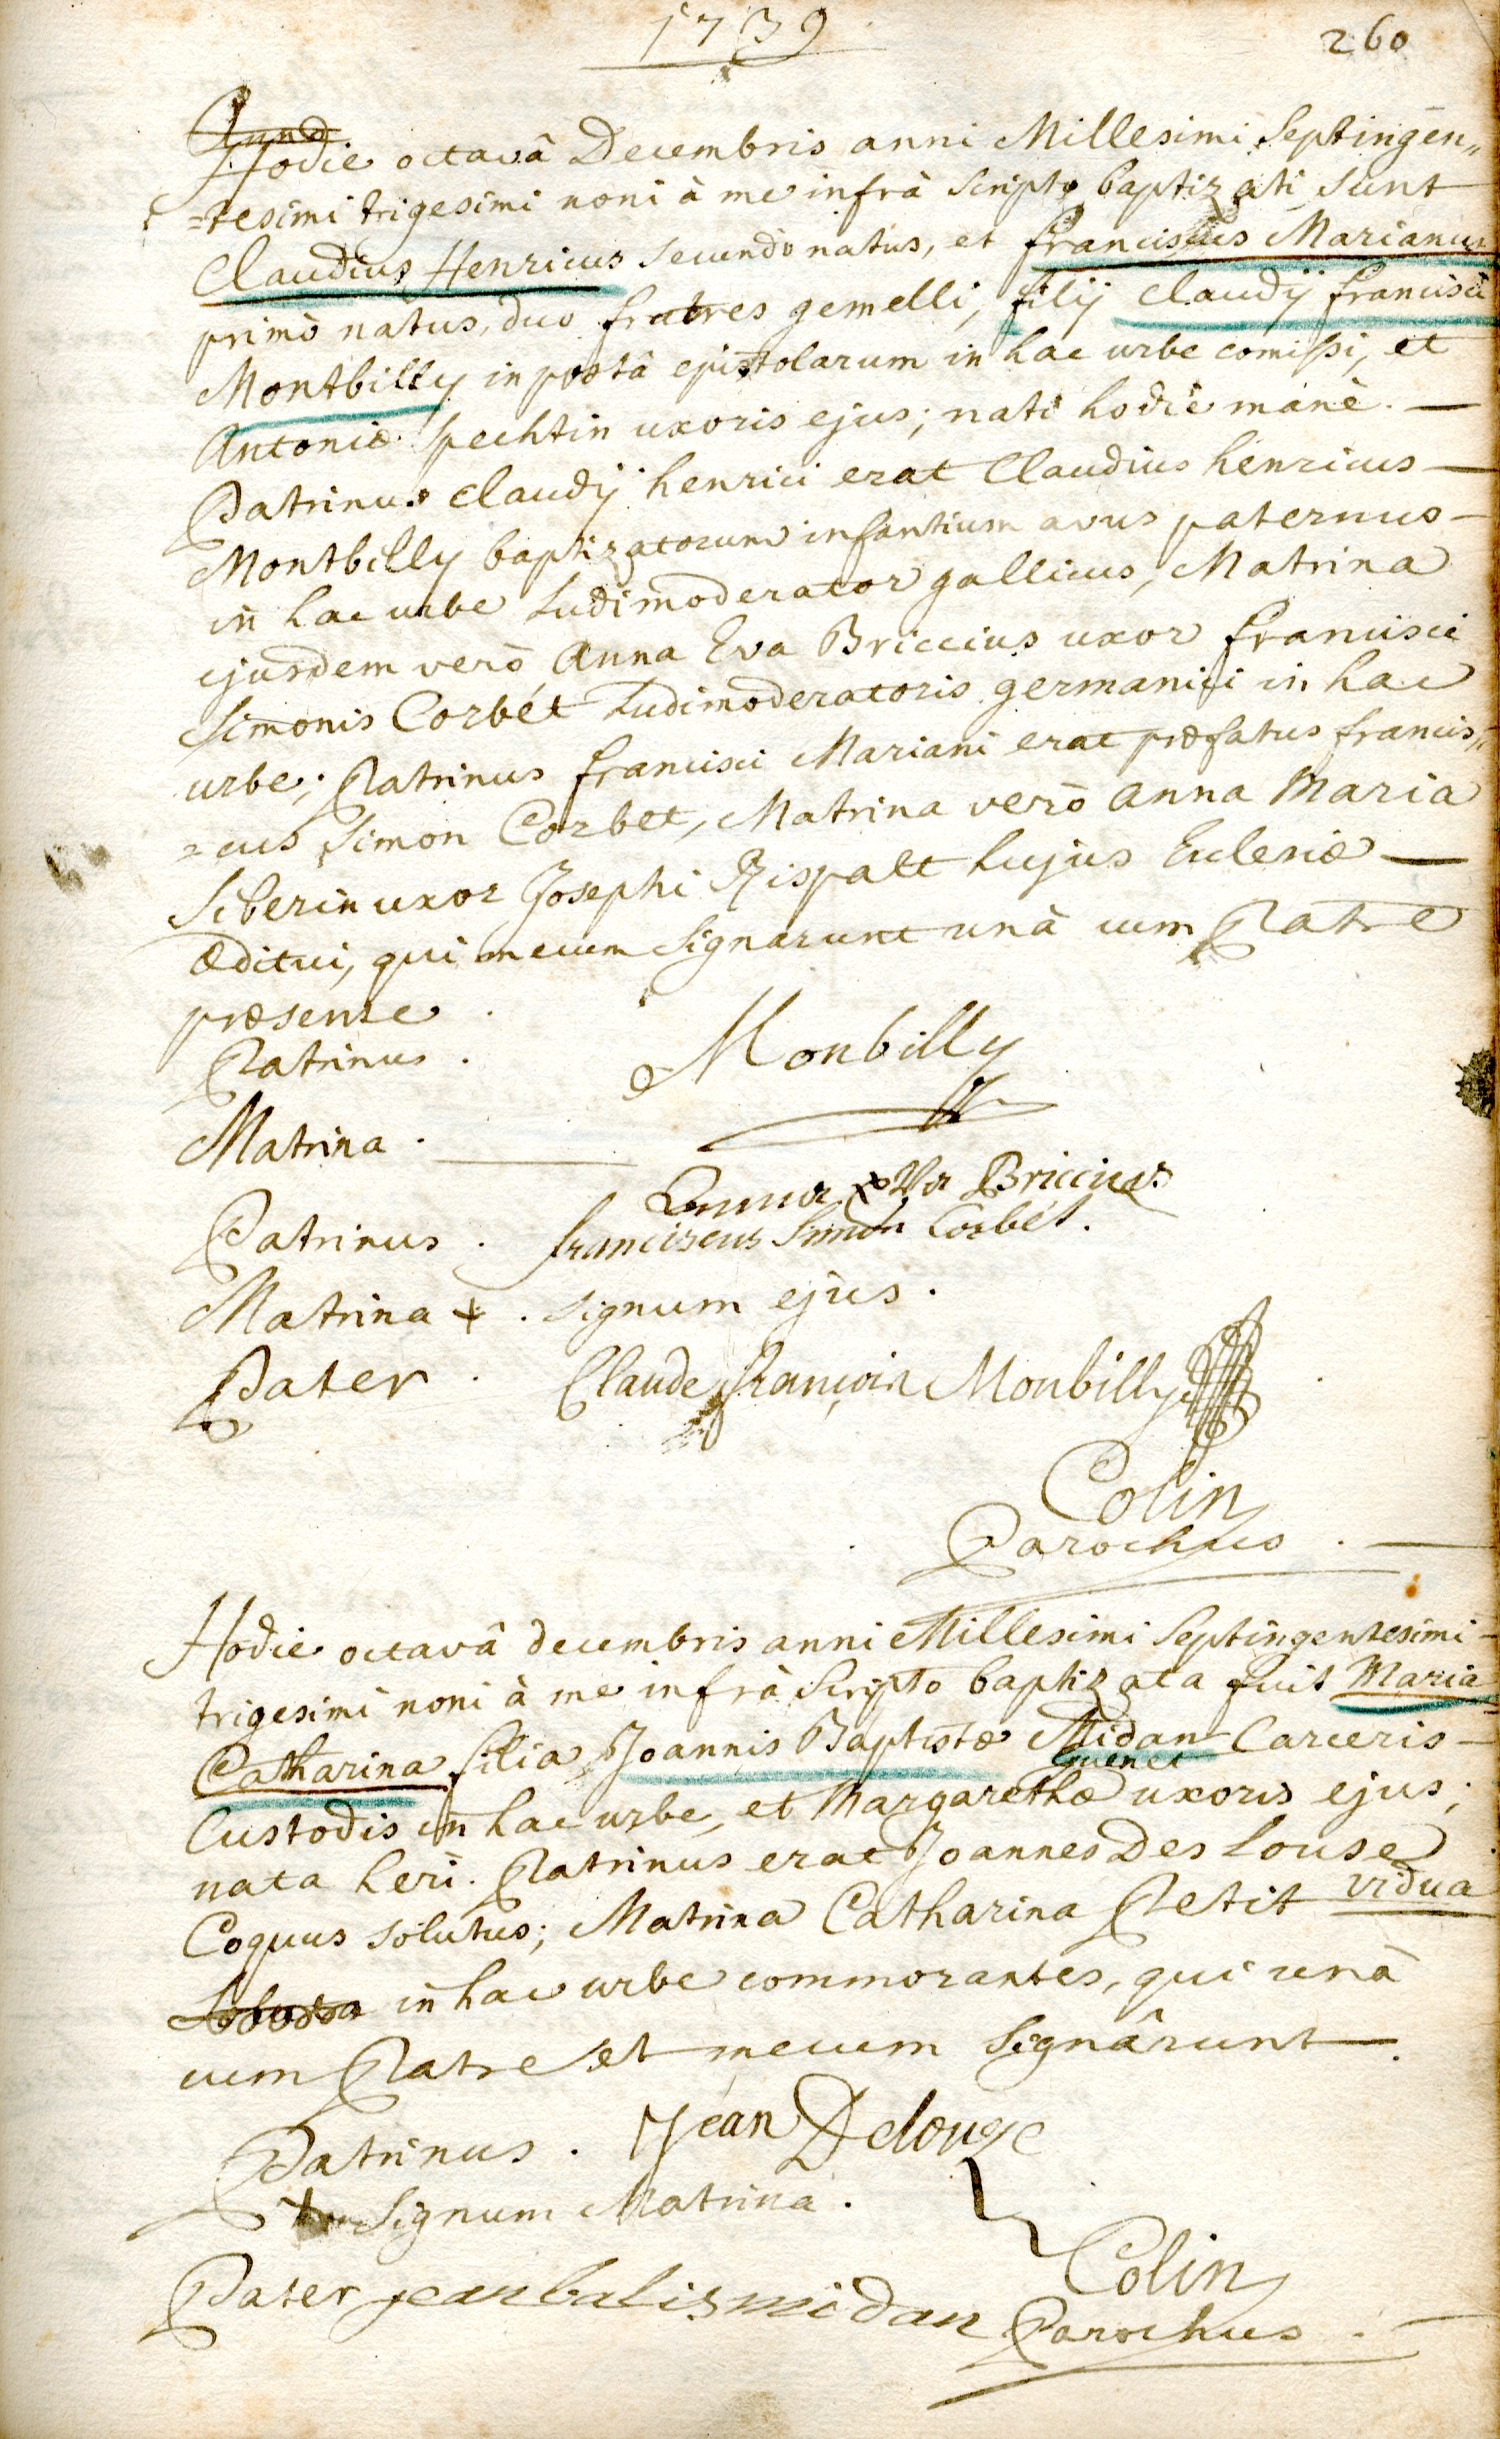 1739
260
Anno
Hodie octavâ Decembris anni Millesimi Septingen,,
=tesimi trigesimi noni à me infrà scripto baptizati sunt
Claudius Henricus secundo natus, et franciscus Marianus
primò natus, duo fratres gemelli, filij Claudij francisci
Montbilly in postâ epistolarum in hac urbe comissi, et
Antoniæ Spechtin uxoris ejus; nati hodie manè. —
Patrinus Claudij henrici erat Claudius henricus —
Montbilly baptizatorum infantium avus paternus —
in hac urbe Ludimoderator gallicus, Matrina
ejusdem verò Anna Eva Briccius uxor francisci
Simonis Corbét Ludimoderatoris germanici in hac
urbe; Patrinus francisci Mariani erat præfatus francis,,
=cus Simon Corbet, Matrina verò Anna Maria
Siberin uxor Josephi Rispalt hujus Ecclesiæ —
æditui, qui mecum signarunt unà cum Patre
præsente.
Patrinus. Monbilly
Matrina. Anna Eva Briccius
Patrinus. franciscus Simon Corbét.
Matrina + . signum ejus.
Pater. Claude françois Monbilly
Colin
Parochus. —
Hodie octavâ decembris anni Millesimi Septingentesimi -
trigesimi noni à me infrà scripto baptizata fuit Maria
Catharina filia Joannis Baptistæ Midan Carceris —
guenet
Custodis in hac urbe, et Margarethæ uxoris ejus;
nata heri. Patrinus erat Joannes Des Louse
Coquus solutus; Matrina Catharina Petit vidua
in hac urbe commorantes, qui unà
cum Patre et mecum signârunt.
Patrinus. Jean Delouze
+ Signum Matrina.
Pater jean batis midan
Colin
Parochus. —